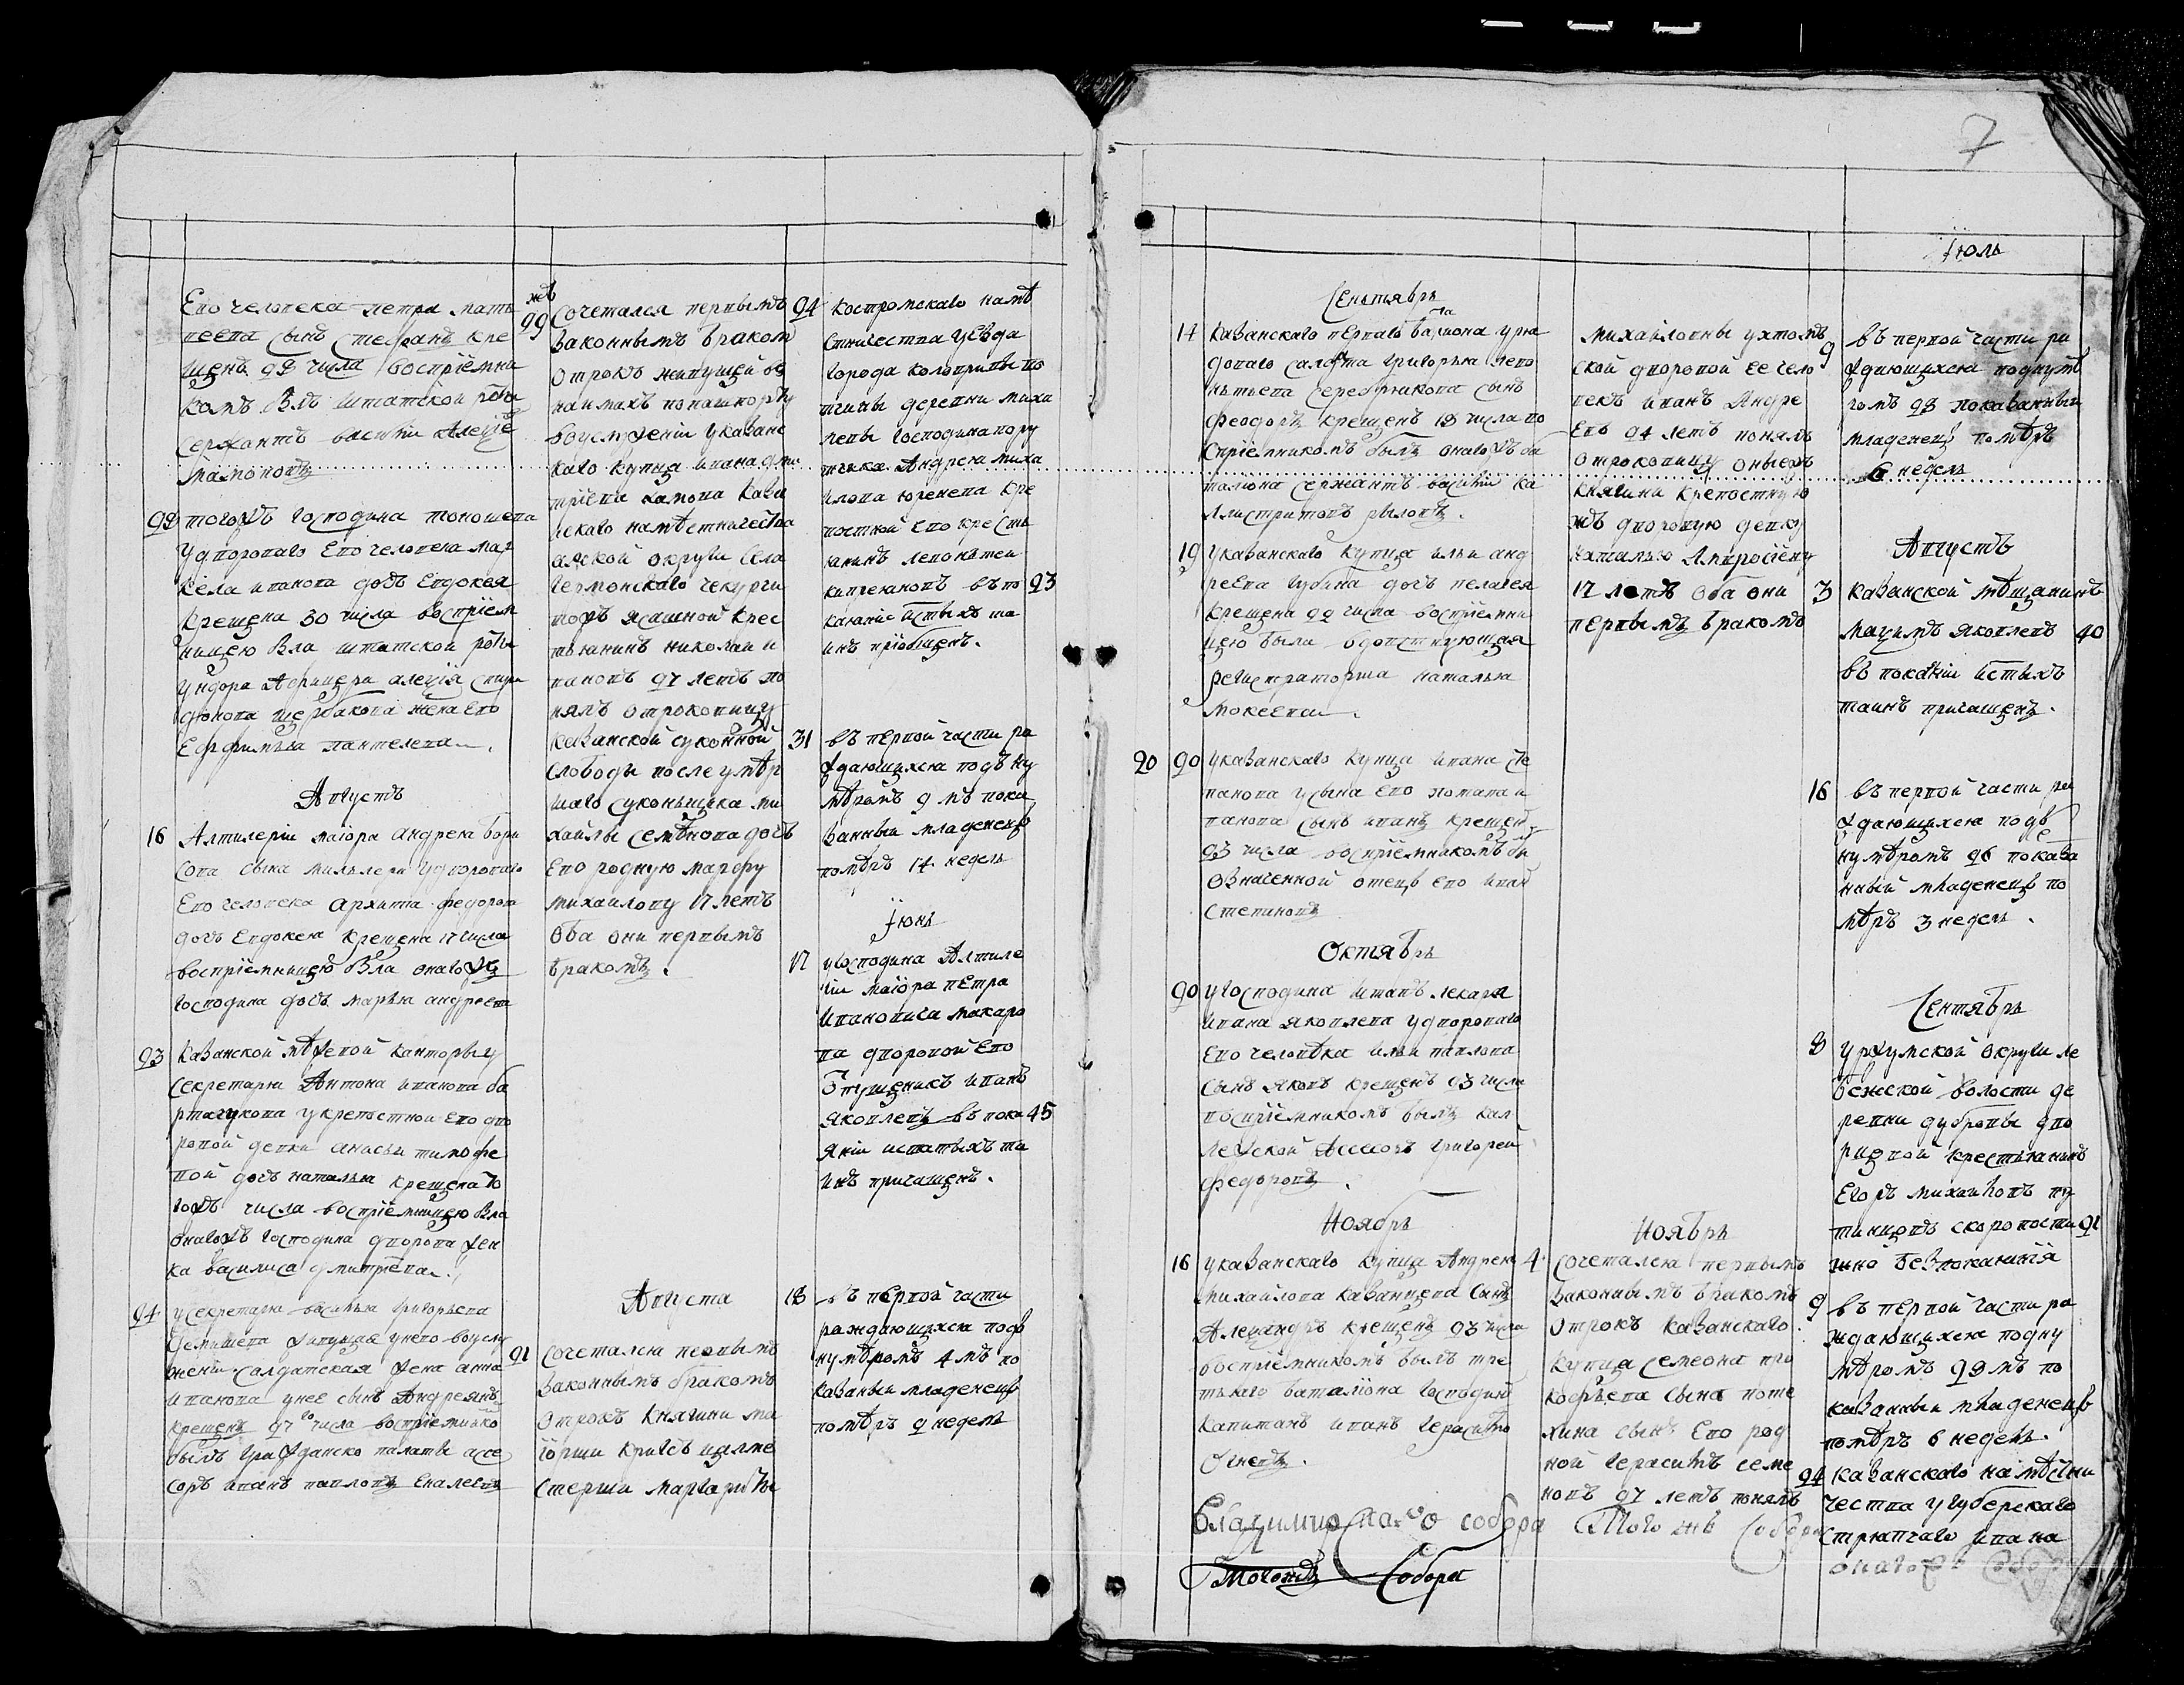 7
Его человека петра мать
веева сынъ стефанъ кре
щенъ 28 числа восприемни
комъ былъ штатской роты
сержантъ василии Алеѯѣ
мамоновъ
29 тогожъ господина тоношева
удворового Его человека мар
кела иванова дочь Евдокея
крещена 30 числа восприем
ницею была штатской роты
ундора Афицера алеѯия спири
донова щербакова жена его
Ефимья пантелева
Августъ
16 Алтилерии маиора андрея бори
сова сына миллера удворового
Его человека архипа федорова
дочь Евдокея крещена 17 числа
восприемницею была оногожъ
господина дочь марья андреева
23 казанской межевой канторы у
секретаря Антона иванова ба
укрепостной его дво
ровой девки анисьи тимофе
вой дочь наталья крещена то
гожъ числа восприемницею была
оногожъ господина дворова жен
ка василиса дмитриева
24 у секретаря василья григорьева
живущая унево воуслу
жении салдатская жена анна
иванова унее сынъ Андреянъ
крещенъ 27 го числа восприемнико
былъ гражданско палаты асе
соръ иванъ павловъ
29 Сочетался первымъ
законнымъ бракомъ
отрокъ живущей въ
наимахъ попашпорту
воуслужении указанс
каго купца ивана дми
триева казан
искаго наместничества
округи села
ясашной крес
тьянинъ николаи и
вановъ 27 летъ по
нялъ отроковицу
казанской суконной
слободы после умер
шаго суконщика ми
хаилы семенова дочь
Его родную марфу
михаилову 17 летъ
оба они первымъ
бракомъ.
Августа
21 Сочетался первымъ
законнымъ бракомъ
отрокъ княгини ма
иорши кригсъ цалме
стерши маргариты
24 костромскаго намѣ
стничества уезда
города кологривы во
тчины деревни михи
невы господина пору
тчика Андрея миха
илова кре
постной его кресть
янинъ леонтеи
киприяновъ въ по 23
каянии истыхъ та
инъ приобщенъ.
31 въ первой части ра
ждающихся подъ ну
меромъ 2 мъ пока
занныи младенецъ
померъ 14 недель
Июнь
17 у господина Алтиле
рии маиора петра
ивановича макаро
ва дворовой Его
иванъ
яковлевъ въ пока 45
янии исвятыхъ та
инъ причащенъ.
18 въ первой части
раждающихся подъ
нумеромъ 4 мъ по
казаныи младенецъ
померъ 9 недель
Сентябрь
14 казанскаго перваго баталиона уря
доваго салдата григорья леон
тьева серебрякова сынъ
феодоръ крещенъ 18 числа во
сприемникомъ былъ оногожъ ба
талиона сержантъ василии ка
листратовъ рыловъ.
19 указанскаго купца ильи анд
реева губина дочь пелагея
крещена 22 числа восприемни
цею была вдовствующая
регистраторша наталья
мокеева.
20 20 указанскаго купца ивана сте
панова усына его потапа и
ванова сынъ иванъ крещенъ
23 числа восприемникомъ бы
означенной отецъ его иванъ
степановъ
Октябрь
20 угосподина штапъ лекаря
ивана яковлева удворового
Его человека ильи павлова
сынъ яковъ крещенъ 23 числа
восприемникомъ былъ кал
лежской Ассесоръ григорей
федоровъ.
Ноябрь
16 указанскаго купца Андрея
михайлова казанцева сынъ
Алеѯандръ крещенъ 23 числа
восприемникомъ былъ тре
тьяго баталиона господинъ
капитанъ иванъ герасимо
Огневъ.
Владимирскаго собора
Тогожъ Собора
михайловны ухтомъ
ской дворовой ее чело
векъ иванъ Андре
евъ 24 летъ понялъ
отроковицу оныежъ
княгини крепостную
жъ дворовую девку
наталью Амвросиеву
17 летъ оба они
первымъ бракомъ
Ноябрь
4 Сочетался первымъ
законнымъ бракомъ
отрокъ казанскаго
купца семеона про
кофьева сына поте
хина сынъ Его род
ной герасимъ семе
новъ 27 летъ понялъ
Тогожъ Собора
Июль
9 въ первой части ра
ждающихся поднуме
ромъ 23 показанныи
младенецъ померъ
6 недель
Августъ
3 казанской мещанинъ
маѯимъ яковлевъ 40
въ покаянии истыхъ
таинъ причащенъ.
16 въ первой части ра
ждающихся подъ
нумеромъ 26 показа
нный младенецъ по
меръ 3 недель.
Сентябрь
8 уржумской округи ле
бежской волости де
ревни дубровы дво
рцовой крестьянинъ
Егоръ михаиловъ пу
тинцовъ скоропости 21
жно безпокаяния
9 въ первой части ра
ждающихся подну
меромъ 29 мъ по
казанныи младенецъ
померъ 6 недель.
24 казанскаго намѣсни
чества угубернскаго
стряпчаго ивана
оногожъ Собора